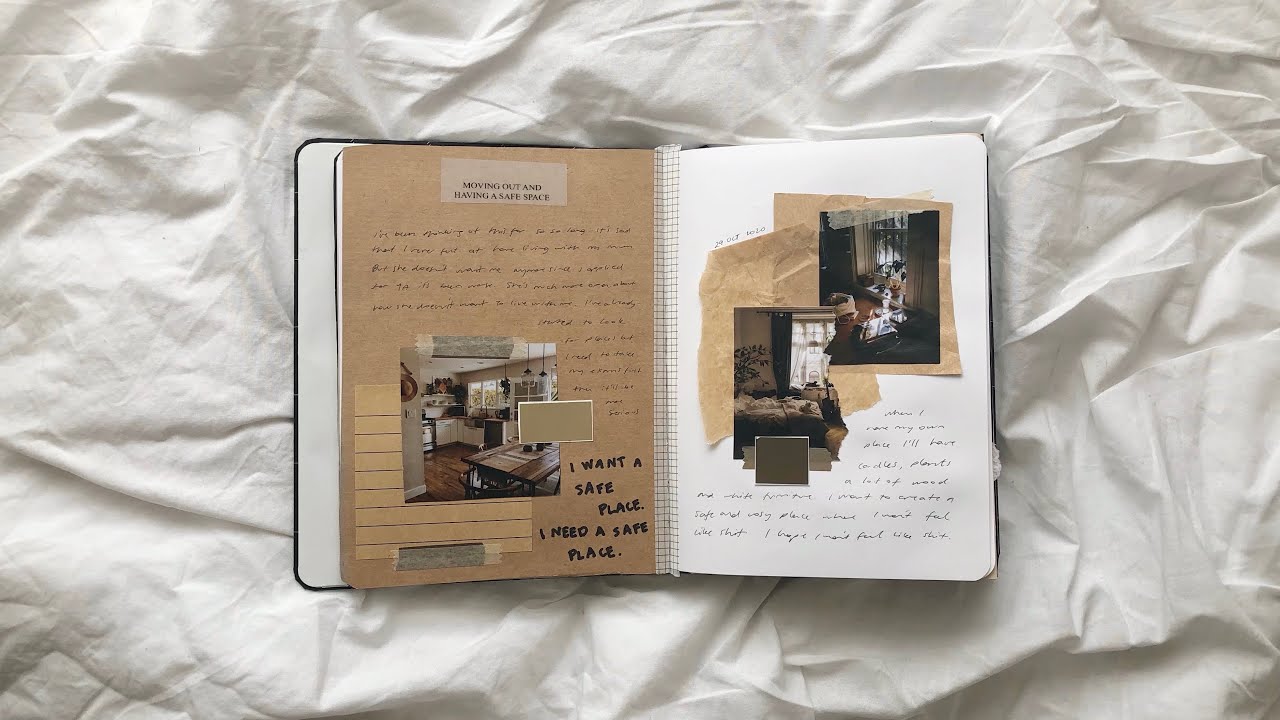 MOVING OUT AND
HAVING A SAFE SPACE
I've been thinking of this for so so long. it's sad
that I never felt at home living with my mum
But she doesn't want me anymore since I applied
for it's even worse. She's much more open about
how she doesn't want to live with me. I've already
started to look
for places but
I need to take
my exams first
then it'll be
more
serious
I WANT A
SAFE
PLACE.
I NEED A SAFE
PLACE.
29 OCT 2020
when I
have my own
place I'll have
candles, plants
a lot of wood
and white furniture. I want to create a
safe and cosy place where I won't feel
like shit. I hope I won't feel like shit.